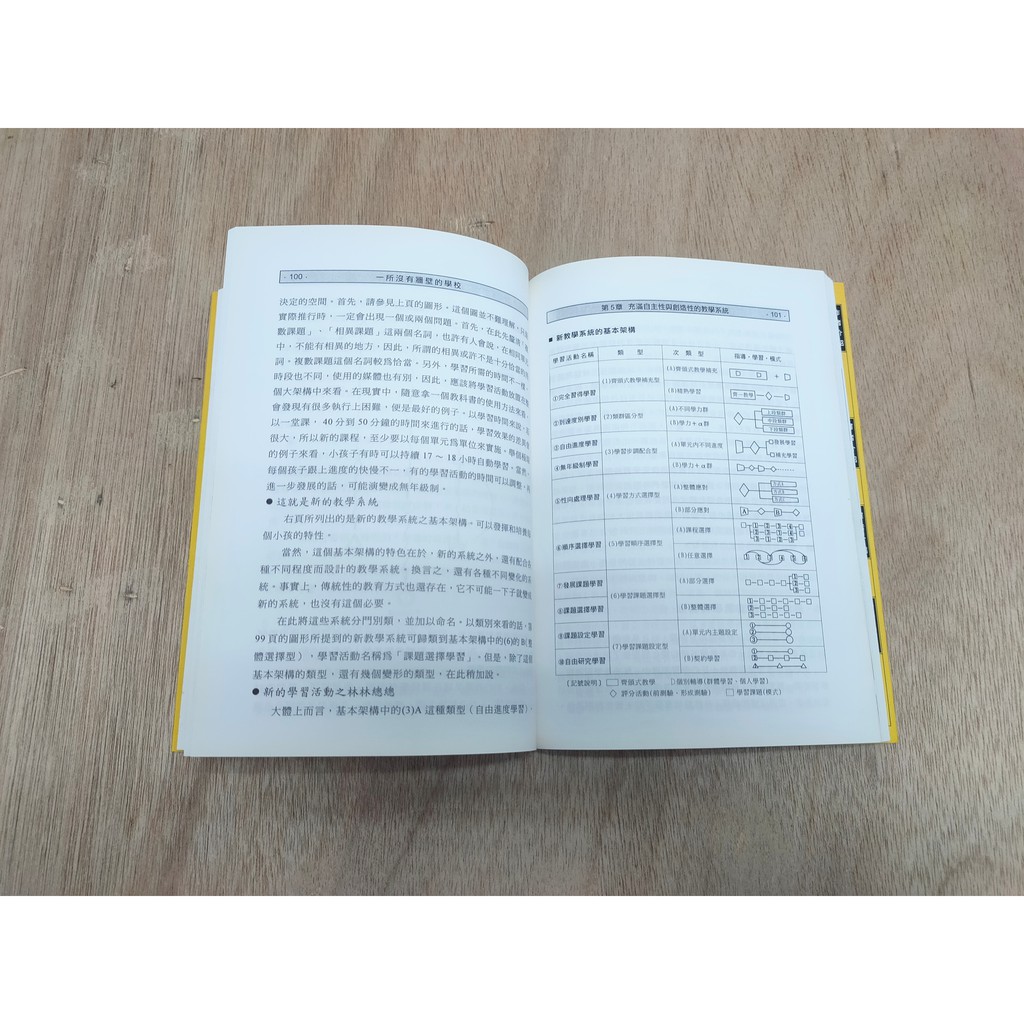 100
一所沒有牆壁的學校
決定的空間。首先,請參見上頁的圖形。這個圖並不難理解,
實際推行時,一定會出現一個或兩個問題。首先,在此先釐清「
數課題」、「相異課題」這兩個名詞,也許有人會說,在相同
中,不能有相異的地方,因此,所謂的相異或許不是十分恰當的
詞。複數課題這個名詞較為恰當。另外,學習所需的時間不一樣,
時段也不同,使用的媒體也有別,因此,應該將學習活動放置在
個大架構中來看。在現實中,隨意拿一個教科書的使用方法來看,
會發現有很多執行上困難,便是最好的例子。以學習時間來說,
以一堂課,40分到50分鐘的時間來進行的話,學習效果的差別
很大,所以新的課程,至少要以每個單元為單位來實施。舉個極端
的例子來看,小孩子有時可以持續17~18小時自動學習。當然,
每個孩子跟上進度的快慢不一,有的學習活動的時間可以調整。再
進一步發展的話,可能演變成無年級制。
●這就是新的教學系統
右頁所列出的是新的教學系統之基本架構。可以發揮和培養
個小孩的特性。
當然,這個基本架構的特色在於,新的系統之外,還有配合
種不同程度而設計的教學系統。換言之,還有各種不同變化的系
統。事實上,傳統性的教育方式也還存在,它不可能一下子就變成
新的系統,也沒有這個必要。
在此將這些系統分門別類,並加以命名。以類別來看的話,第
99頁的圖形所提到的新教學系統可歸類到基本架構中的(6)的B(整
體選擇型),學習活動名稱為「課題選擇學習」、但是,除了這個
基本架構的類型,還有幾個變形的類型,在此稍加說。
●新的學習活動之林林總總
大體上而言,基本架構中的(3)A這種類型(自由進度學習),
第5章 充滿自主性與創造性的教學系統
101
■新教學系統的基本架構
學習活動名稱 類型 次類型 指導・學習・模式
①完全習得學習 (1)齊頭式教學補充型 (A)齊頭式教學補充
(B)精熟學習 齊一教學
②到達度別學習 (2)類群區分型 (A)不同學力群
(B)學力+α群
③自由進度學習 (3)學習步調配合型 (A)單元內不同進度 發展學習
補充學習
④無年級制學習 (B)學力+α群
⑤性向處理學習 (4)學習方式選擇型 (A)整體應對
(B)部分應對 A B
⑥順序選擇學習 (5)學習順序選擇型 (A)課程選擇
(B)任意選擇
⑦發展課題學習 (6)學習課題選擇型 (A)部分選擇
⑧課題選擇學習 (B)整體選擇
⑨課題設定學習 (7)學習課題設定型 (A)單元內主題設定
⑩自由研究學習 (B)契約學習
〔記號說明〕 齊頭式教學 個別輔導(群體學習、個人學習)
評分活動(前測驗、形成測驗) 學習課題(模式)